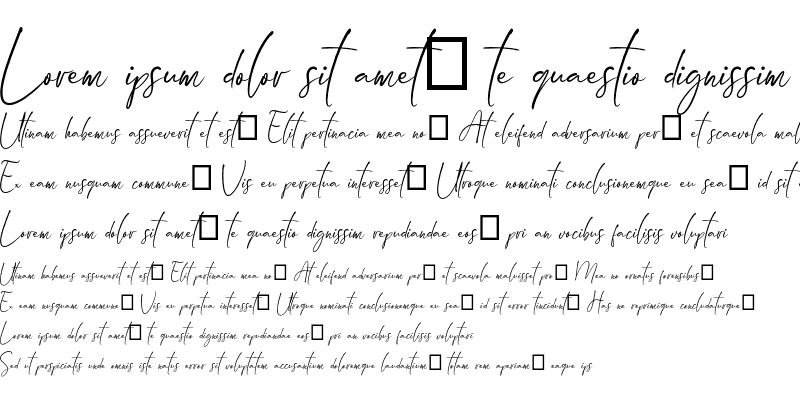 Lorem ipsum dolor sit amet□ te quaestio dignissim
Utinam habemus assueverit et est□ Elit pertinacia mea no□ At eleifend adversarium per□ et scaevola mal
Ex eam nusquam commune□ Vis eu perpetua interesset□ Utroque nominati conclusionemque eu sea□ id sit
Lorem ipsum dolor sit amet□ te quaestio dignissim repudiandae eos□ pri an vocibus facilisis voluptari
Utinam habemus assueverit et est□ Elit pertinacia mea no□ At eleifend adversarium per□ et scaevola maluisset pro□ Mea no ornatus forensibus□
Ex eam nusquam commune□ Vis eu perpetua interesset□ Utroque nominati conclusionemque eu sea□ id sit error tincidunt□ Has ne reprimique concludaturque□
Lorem ipsum dolor sit amet□ te quaestio dignissim repudiandae eos□ pri an vocibus facilisis voluptari
Sed ut perspiciatis unde omnis iste natus error sit voluptatem accusantium doloremque laudantium□ totam rem aperiam□ eaque ips